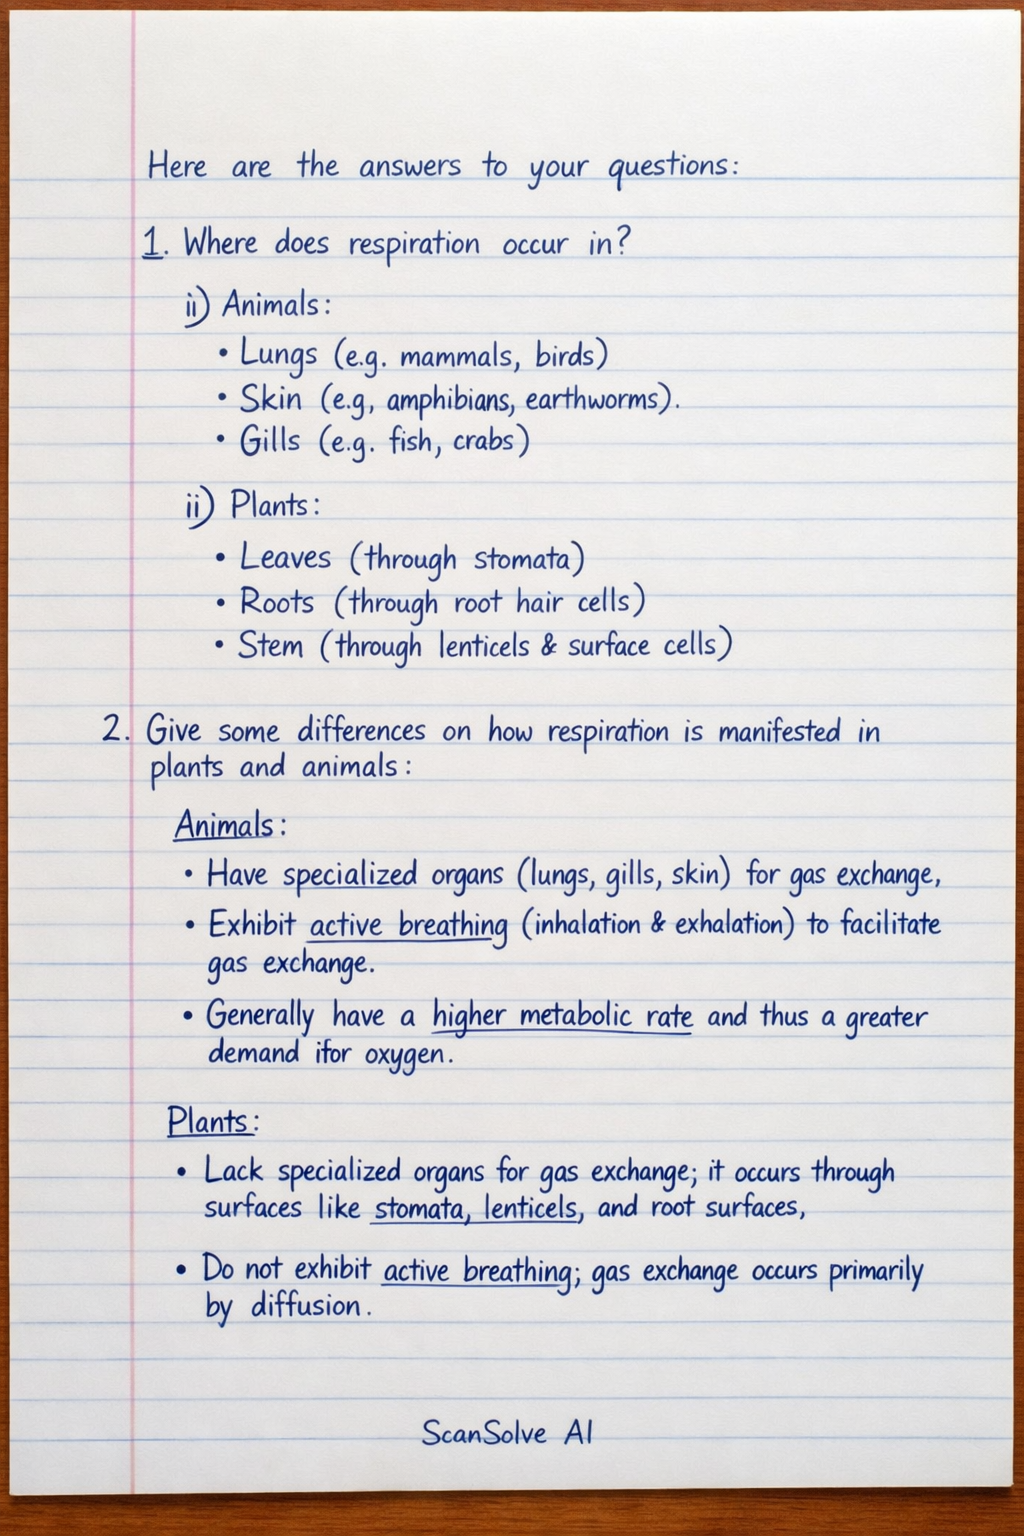 Here are the answers to your questions:
1. Where does respiration occur in?
ii) Animals:
• Lungs (e.g. mammals, birds)
• Skin (e.g, amphibians, earthworms).
• Gills (e.g. fish, crabs)
ii) Plants:
• Leaves (through stomata)
• Roots (through root hair cells)
• Stem (through lenticels & surface cells)
2. Give some differences on how respiration is manifested in
plants and animals:
Animals:
• Have specialized organs (lungs, gills, skin) for gas exchange,
• Exhibit active breathing (inhalation & exhalation) to facilitate
gas exchange.
• Generally have a higher metabolic rate and thus a greater
demand ifor oxygen.
Plants:
• Lack specialized organs for gas exchange; it occurs through
surfaces like stomata, lenticels, and root surfaces,
• Do not exhibit active breathing; gas exchange occurs primarily
by diffusion.
ScanSolve AI